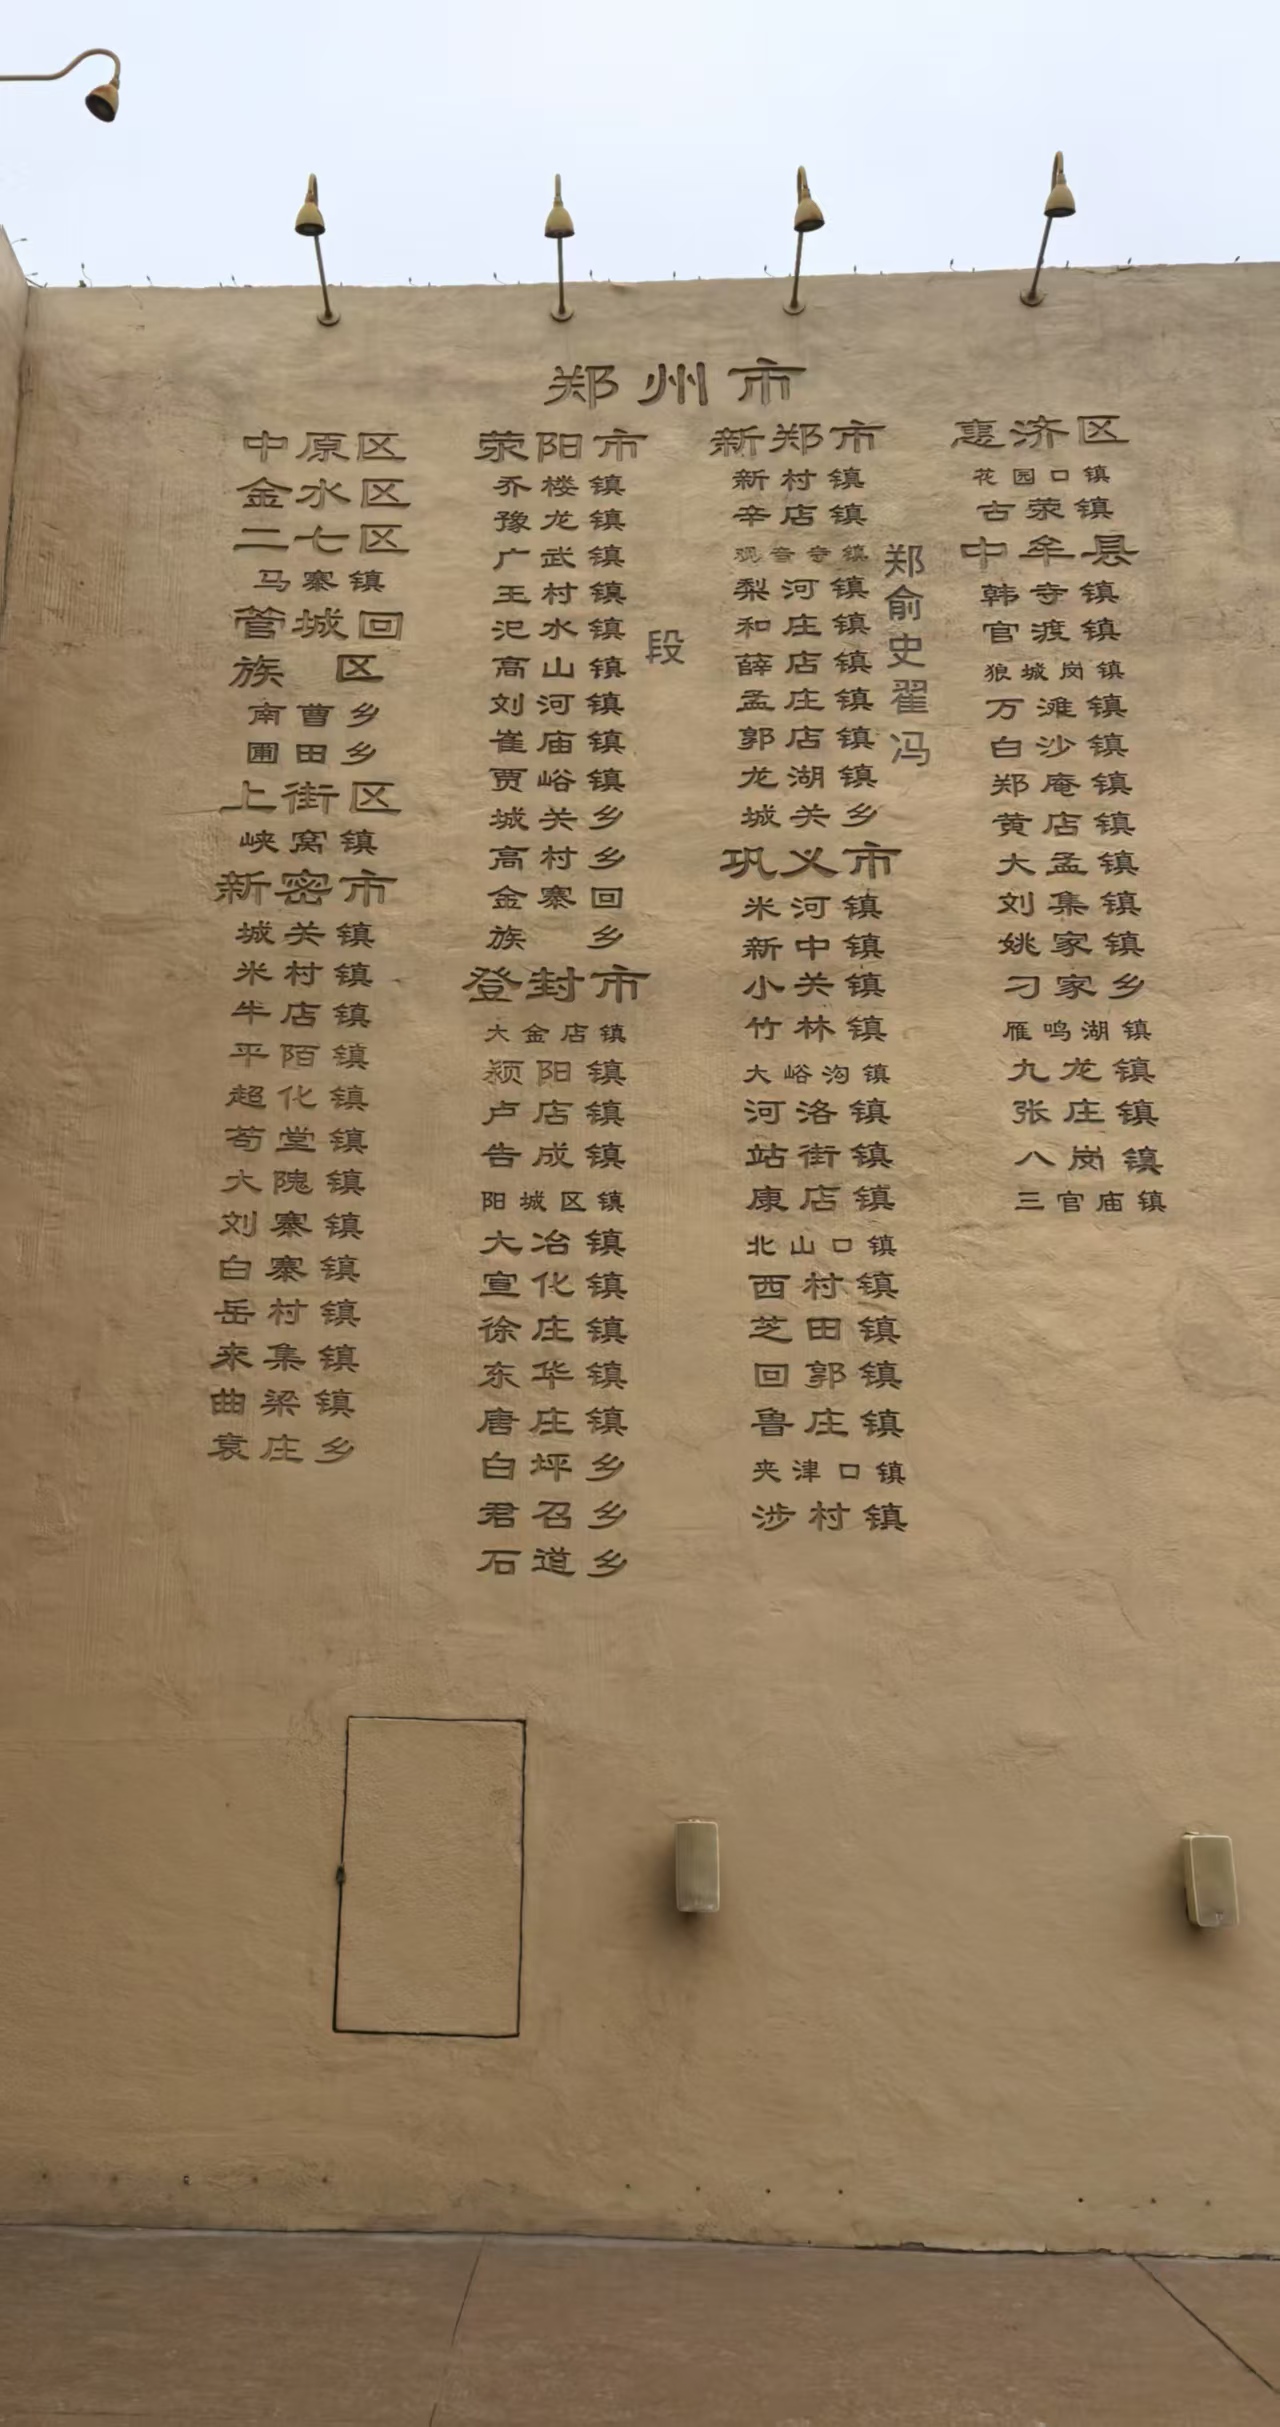 郑州市
中原区
金水区
二七区
马寨镇
管城回
族区
南曹乡
圃田乡
上街区
峡窝镇
新密市
城关镇
米村镇
牛店镇
平陌镇
超化镇
苟堂镇
大隗镇
刘寨镇
白寨镇
岳村镇
来集镇
曲梁镇
袁庄乡
荥阳市
乔楼镇
豫龙镇
广武镇
王村镇
汜水镇
高山镇
刘河镇
崔庙镇
贾峪镇
城关乡
高村乡
金寨回
族乡
段
登封市
大金店镇
颍阳镇
卢店镇
告成镇
阳城区镇
大冶镇
宣化镇
徐庄镇
东华镇
唐庄镇
白坪乡
君召乡
石道乡
新郑市
新村镇
辛店镇
观音寺镇
梨河镇
和庄镇
薛店镇
孟庄镇
郭店镇
龙湖镇
城关乡
郑俞史翟冯
巩义市
米河镇
新中镇
小关镇
竹林镇
大峪沟镇
河洛镇
站街镇
康店镇
北山口镇
西村镇
芝田镇
回郭镇
鲁庄镇
夹津口镇
涉村镇
惠济区
花园口镇
古荥镇
中牟县
韩寺镇
官渡镇
狼城岗镇
万滩镇
白沙镇
郑庵镇
黄店镇
大孟镇
刘集镇
姚家镇
刁家乡
雁鸣湖镇
九龙镇
张庄镇
八岗镇
三官庙镇